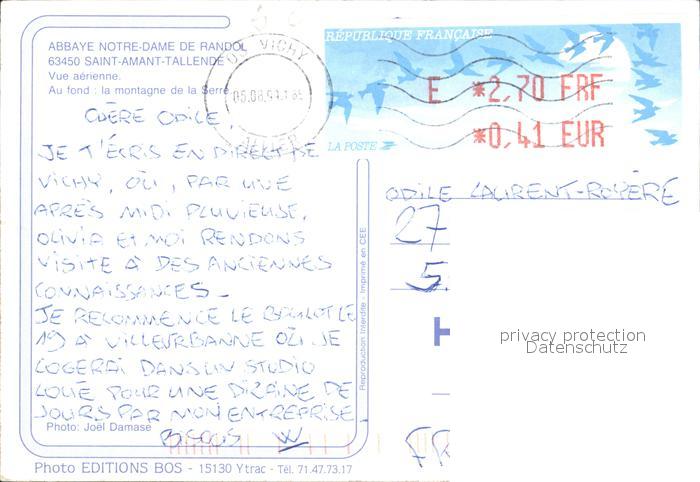 ABBAYE NOTRE-DAME DE RANDOL
63450 SAINT-AMANT-TALLENDE
Vue aérienne.
Au fond : la montagne de la Serre.
VICHY
RÉPUBLIQUE FRANÇAISE
E *2,70 FRF
*0,41 EUR
LA POSTE
CHÈRE ODILE,
JE T'ÉCRIS EN DIRECT DE
VICHY, OÙ, PAR UNE
APRÈS MIDI PLUVIEUSE,
OLIVIA ET MOI RENDONS
VISITE A DES ANCIENNES
CONNAISSANCES_
JE RECOMMENCE LE BOULOT LE
19 A VILLEURBANNE OÙ JE
LOGERAI DANS UN STUDIO
LOUÉ POUR UNE DIZAINE DE
JOURS PAR MON ENTREPRISE
BISOUS
Photo: Joël Damase
Photo EDITIONS BOS - 15130 Ytrac - Tél. 71.47.73.17
Reproduction Interdite - Imprimé en CEE
ODILE LAURENT-ROYÈRE
27
5
privacy protection
Datenschutz
FR